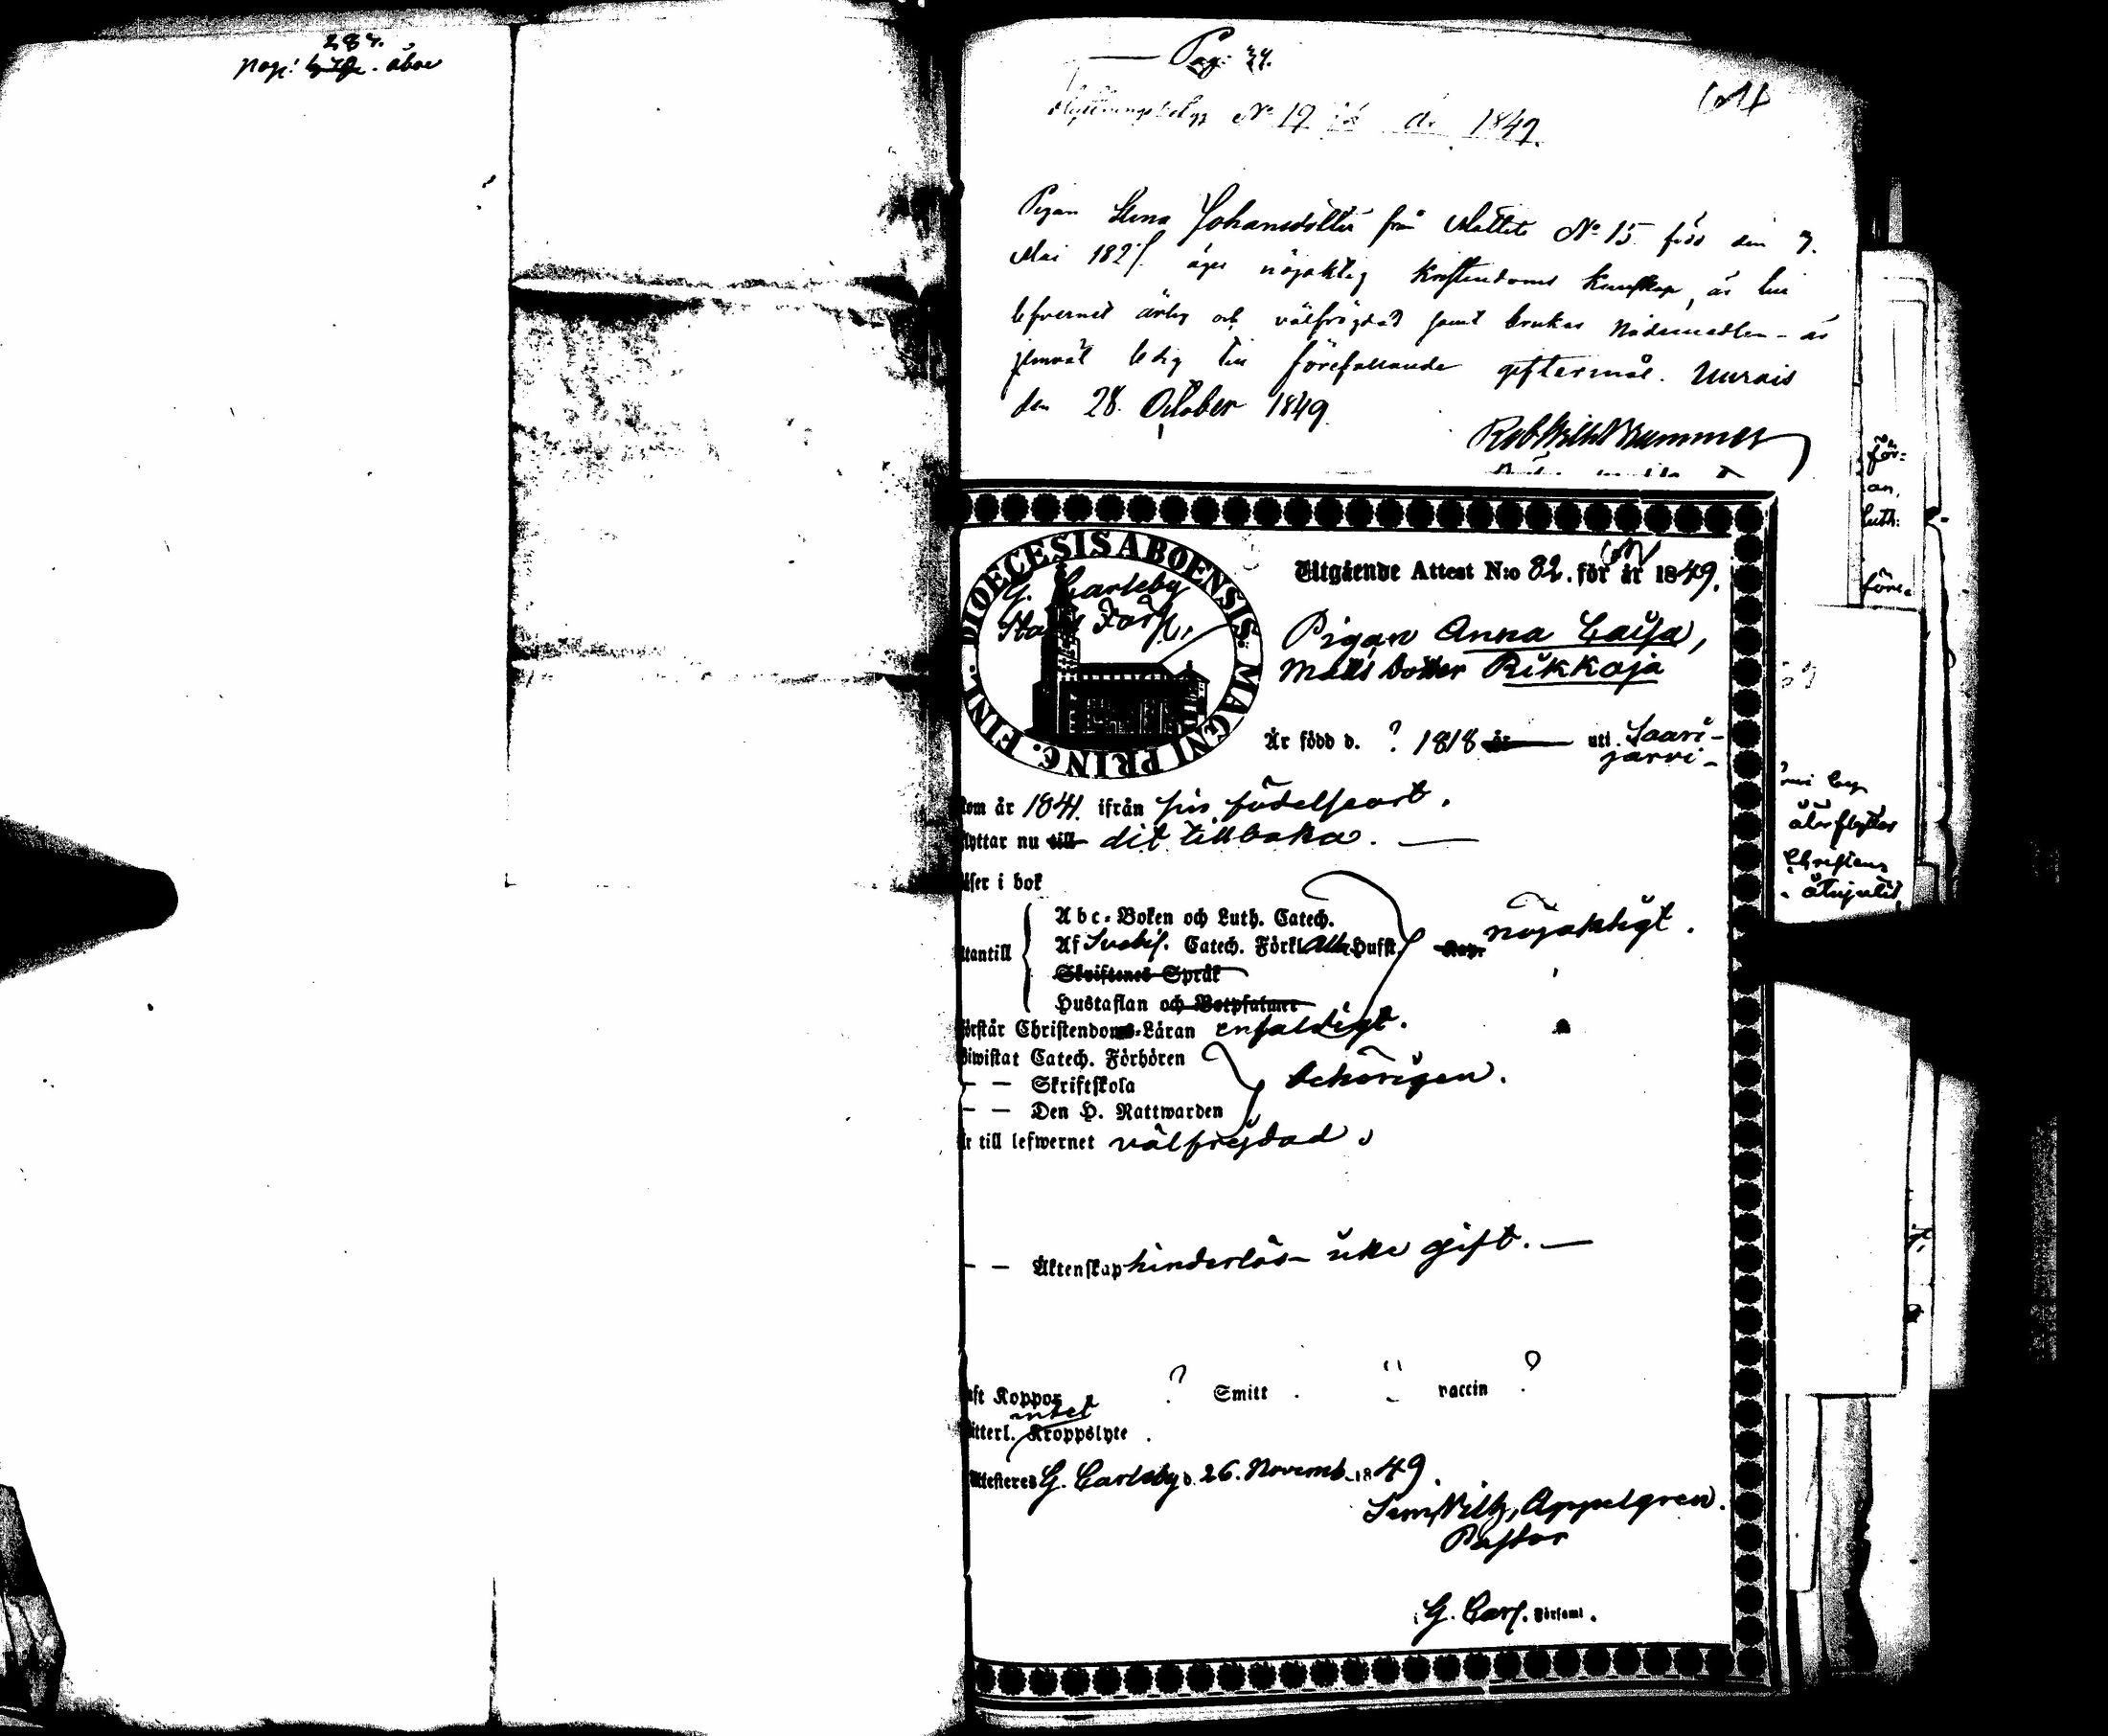 287.
pag: åboe
Pag: 34.
Flyttningsbetyg No 19 år 1849.
Pigan Stina Johansdotter från No 15 född den 7.
Mai 182 äger nöjaktig Kristendoms Kunskap, är till
lefvernet ärlig och välfrejdad samt brukar Nådemedlen - är
jemväl ledig till förefallande giftermål. Uurais
den 28. October 1849
Rob Wilh Brummer
DIOECESIS ABOENSIS MAGNI PRINC. FINL.
G. Carleby
Stads Förs.
Utgående Attest N:o 82. för år 1849.
Pigan Anna Caisa,
Matts Dotter Rikkoja
Är född d. ? 1818 år uti Saari-
järvi -
kom år 1841. ifrån sin födelseort.
flyttar nu till dit tillbaka. —
läser i bok
utantill
Abc-Boken och Luth. Catech.
Af Svebil. Catech. Förkl. Alla Hufst.
nöjaktigt.
Skriftenes Språk
Hustaflan och Botpsalmer
förstår Christendoms-Läran enfaldigt.
biwistat Catech. Förhören
— — Skriftskola
behörigen.
— — Den H. Nattwarden
är till lefwernet välfrejdad,
— — Äktenskap hinderlös - icke gift. —
haft Koppor ? Smitt vaccin ?
intet
witterl. Kroppslyte.
Attesteras G. Carleby d. 26. Novemb. 1849.
Sim. Wilh. Appelgren.
Pastor
i G. Carl. Församl.
för=
an,
Luth:
före=
återflyttar
Christens